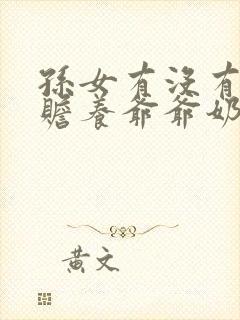 孙女有没有
赡养爷爷奶
黄文